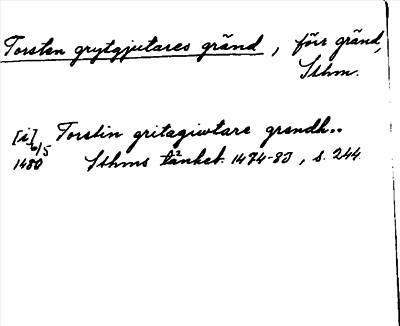 Torsten grytgjutares gränd, förr gränd,
Sthm.
[i] Torstin gritagiwtare grendh..
6/5
1480 Sthms tänkeb. 1474-83, s. 244.